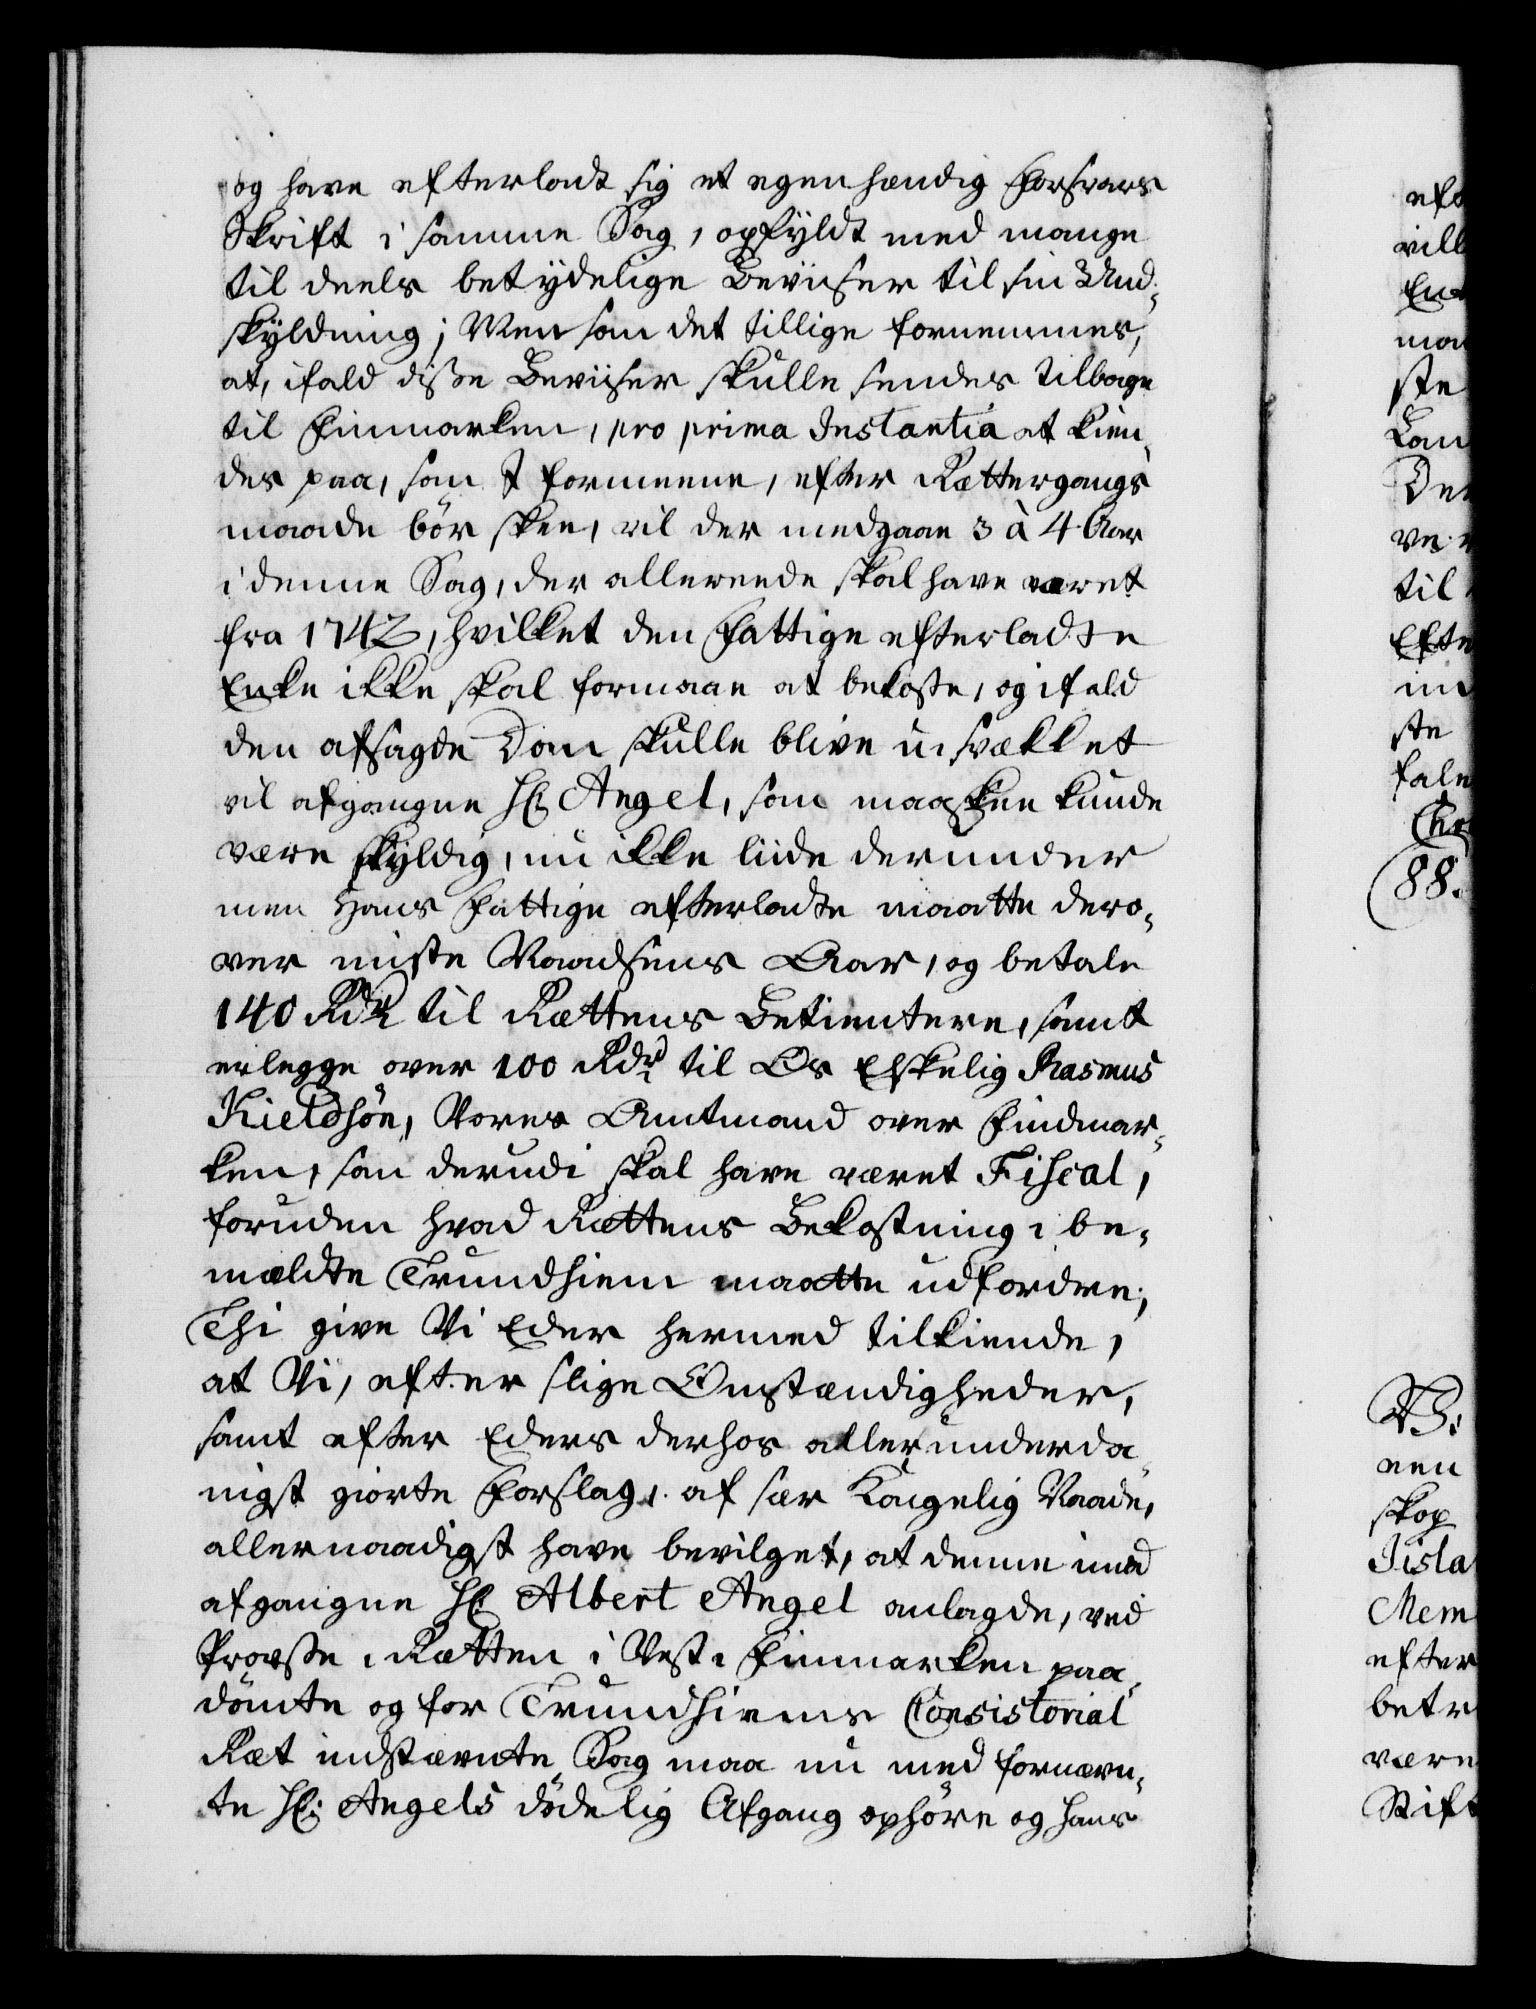 og have efterladt sig et egenhændig Forsvars
Skrift i samme Sag, opfyldt med mange
til deels betydelige Beviiser til sin Und-
skyldning; Men som det tillige fornemmes,
at, ifald disse Beviiser skulle sendes tilbage
til Finmarken, pro prima Instantia at kien-
des paa, som I formeene, efter Rættergangs
maade bør skee, vil der medgaae 3 à 4 Aar
i denne Sag, der allereede skal have været
fra 1742, hvilket den Fattige efterladte
Enke ikke skal formaae at bekoste, og ifald
den afsagde Dom skulle blive usvækket
vil afgangne Hr: Angel, som maaskee kunde
være skyldig, nu ikke liide derunder
men Hans Fattige efterladte maatte dero-
ver miste Naadsens Aar, og betale
140 Rdr til Rættens Betientere, samt
erlegge over 100 Rdr til Os Elskelig Rasmus
Kieldsön, Vores Amtmand over Findmar-
ken, som derudi skal have været Fiscal,
foruden hvad Rættens Bekostning i be-
mældte Trundhiem maatte udfordre;
Thi give Vi Eder hermed tilkiende,
at Vi, efter slige Omstændigheder,
samt efter Eders derhos allerunderda-
nigst giorte Forslag, af sær Kongelig Naade,
allernaadigst have bevilget, at denne imod
afgangne Hr: Albert Angel anlagde, ved
Provste-Rætten i Vest-Finmarken paa-
dömte og for Trundhiems Consistorial
Ræt indstævnte Sag maa nu med fornævn-
te Hr: Angels dödelig Afgang ophöre og hans
88.
ville
ma
ste
til
Efte
ste
V. S.
skop
Jisla
Mem
efter
betr
være
Stift